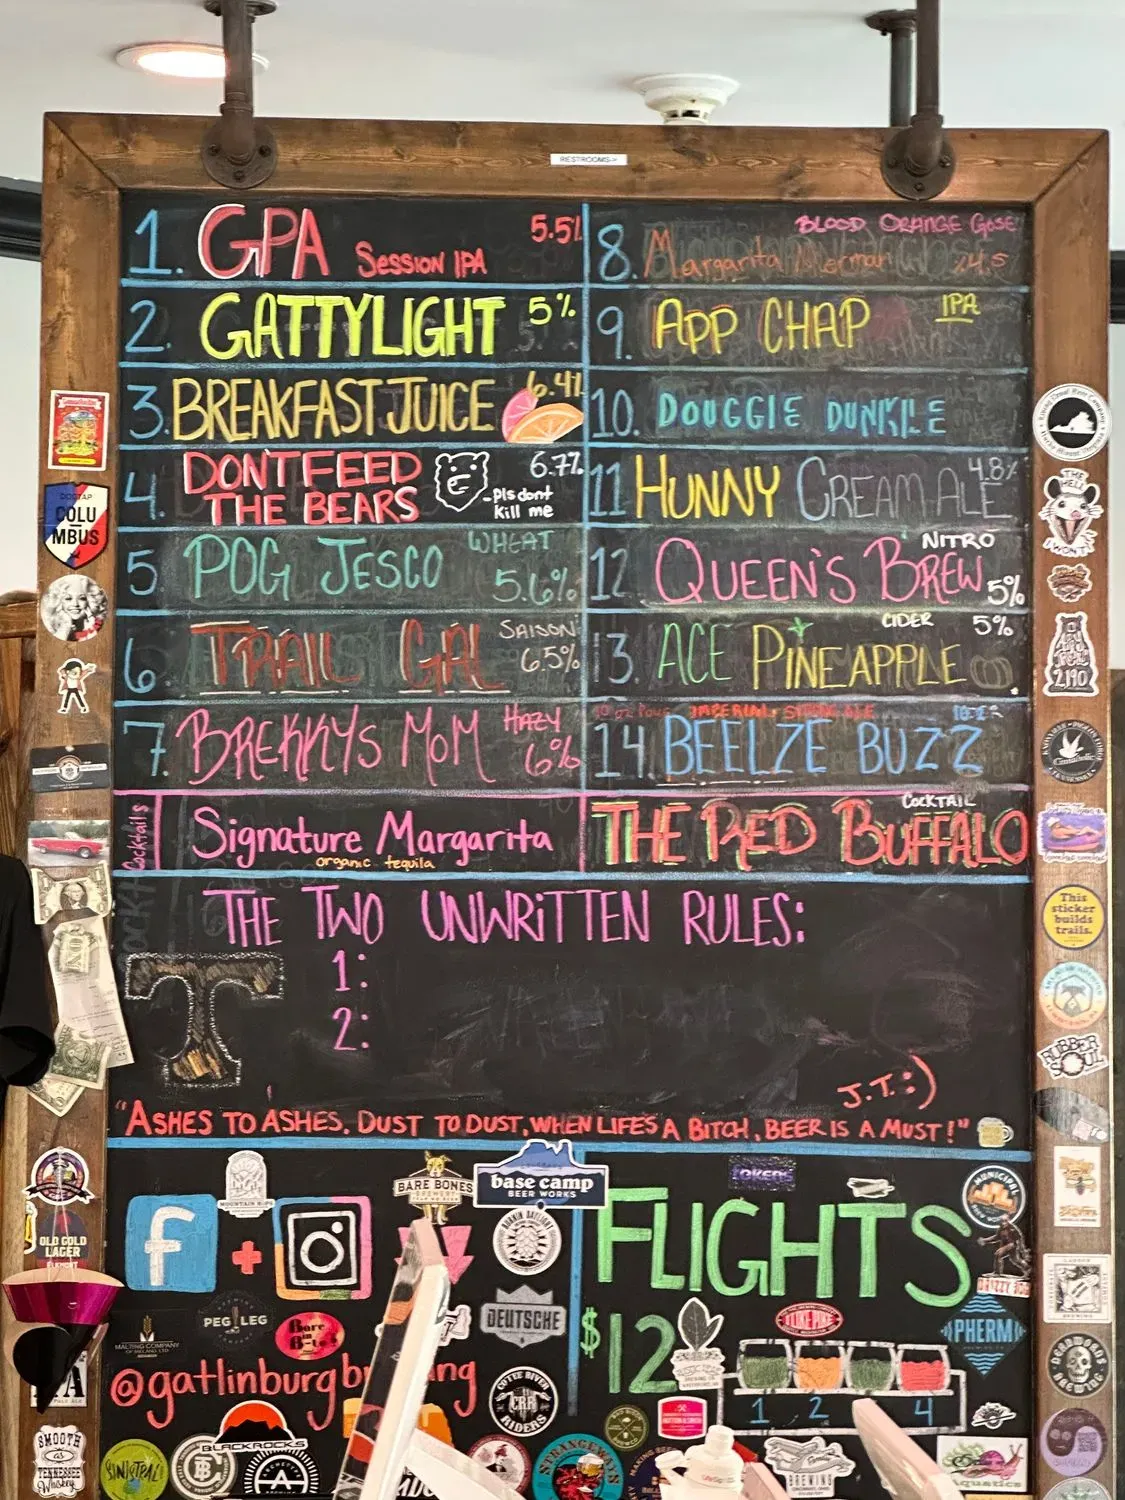 RESTROOMS->
1. GPA Session IPA 5.5%
2. GATTYLIGHT 5%
3. BREAKFAST JUICE 6.4%
4. DONT FEED THE BEARS 6.7%
-pls dont kill me
5. POG JESCO WHEAT 5.6%
6. TRAIL GAL SAISON 6.5%
7. BREKKY'S MOM HAZY 6%
8. Margarita Merman BLOOD ORANGE GOSE 4.5
9. APP CHAP IPA
10. DOUGGIE DUNKLE
11 HUNNY CREAM ALE 4.8%
12 QUEEN'S BREW NITRO 5%
13 ACE PINEAPPLE CIDER 5%
14. BEELZE BUZZ
10 oz Pour IMPERIAL
Cocktails
Signature Margarita
organic tequila
THE RED BUFFALO COCKTAIL
THE TWO UNWRITTEN RULES:
1:
2:
T
J.T. :)
"ASHES TO ASHES, DUST TO DUST, WHEN LIFE'S A BITCH, BEER IS A MUST!"
f + 
@gatlinburgb
FLIGHTS
$12
1 2 4
DOGTAP
COLU
MBUS
OLD GOLD
LAGER
SMOOTH
AS
TENNESSEE
Whiskey
BARE BONES
base camp
BEER WORKS
PEG LEG
Bare
in
DEUTSCHE
MALTING COMPANY
BLACKROCKS
RIDERS
TOKENS
MUNICIPAL
PHERM
BREWING
THE
HELL
I WON'T
2,190
This
sticker
builds
trails.
RUBBER
SOUL
DEADWORDS
BREWING